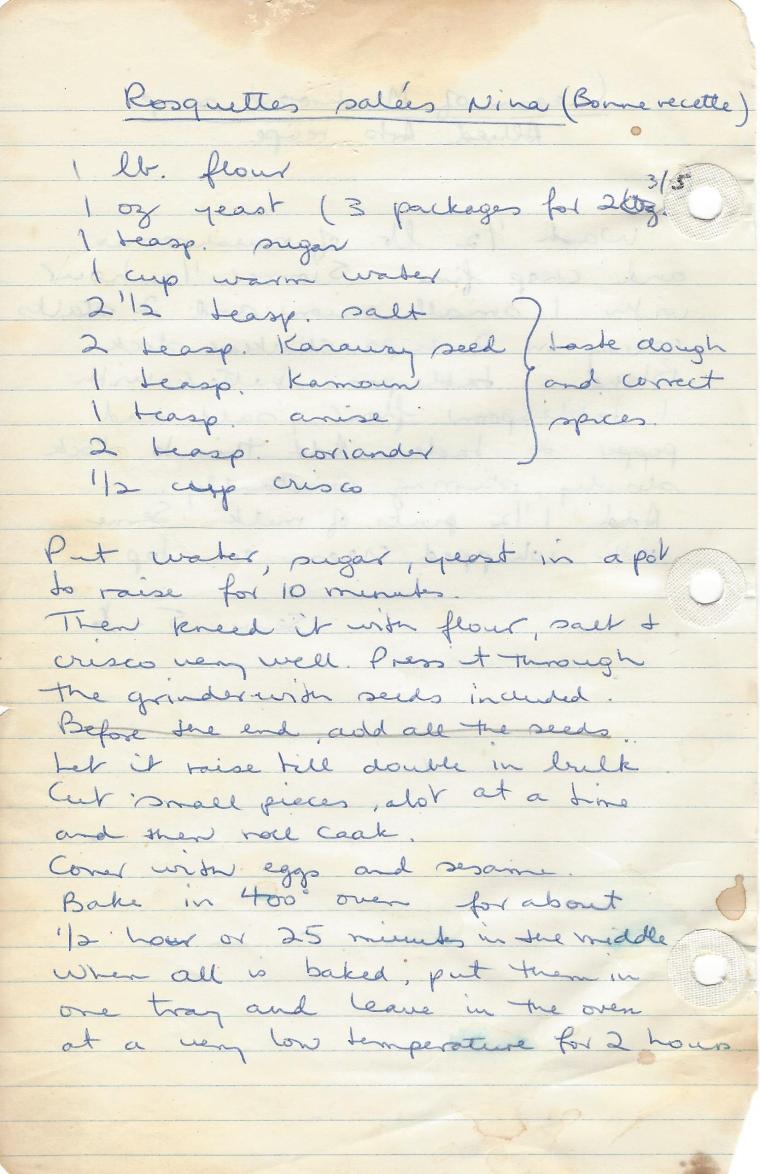 Rosquettes salées Nina (Bonne recette)
1 lb. flour
1 oz yeast (3 packages for 2
3/5
1 teasp. sugar
1 cup warm water
2 1/2 teasp. salt
2 teasp. Karaway seed
1 teasp. Kamoun
1 teasp. anise
2 teasp. coriander
taste dough
and correct
spices.
1/2 cup crisco
Put water, sugar, yeast in a pot
to raise for 10 minutes.
Then kneed it with flour, salt &
crisco very well. Press it through
the grinder with seeds included.
Before the end, add all the seeds.
Let it raise till double in bulk
Cut small pieces, alot at a time
and then roll Caak.
Cover with eggs and sesame.
Bake in 400° oven for about
1/2 hour or 25 minutes in the middle
When all is baked, put them in
one tray and leave in the oven
at a very low temperature for 2 hours